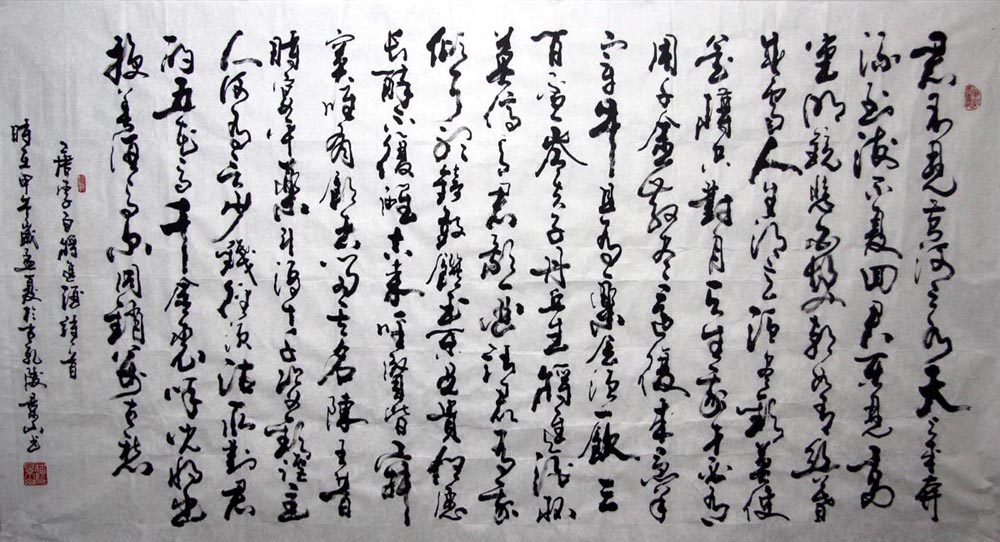 君不見黃河之水天上來奔
流到海不復回君不見高
堂明鏡悲白髮朝如青絲暮
成雪人生得意須盡歡莫使
金樽空對月天生我才必有
用千金散盡還復來烹羊
宰牛且為樂會須一飲三
百杯岑夫子丹丘生將進酒杯
莫停與君歌一曲請君為我
傾耳聽鐘鼓饌玉不足貴但願
長醉不復醒古來聖賢皆寂
寞唯有飲者留其名陳王昔
時宴平樂斗酒十千恣歡謔主
人何為言少錢徑須沽取對君
酌五花馬千金裘呼兒將出
換美酒與爾同銷萬古愁
唐李白將進酒詩一首
時在甲午歲孟夏於古乾陵景山書